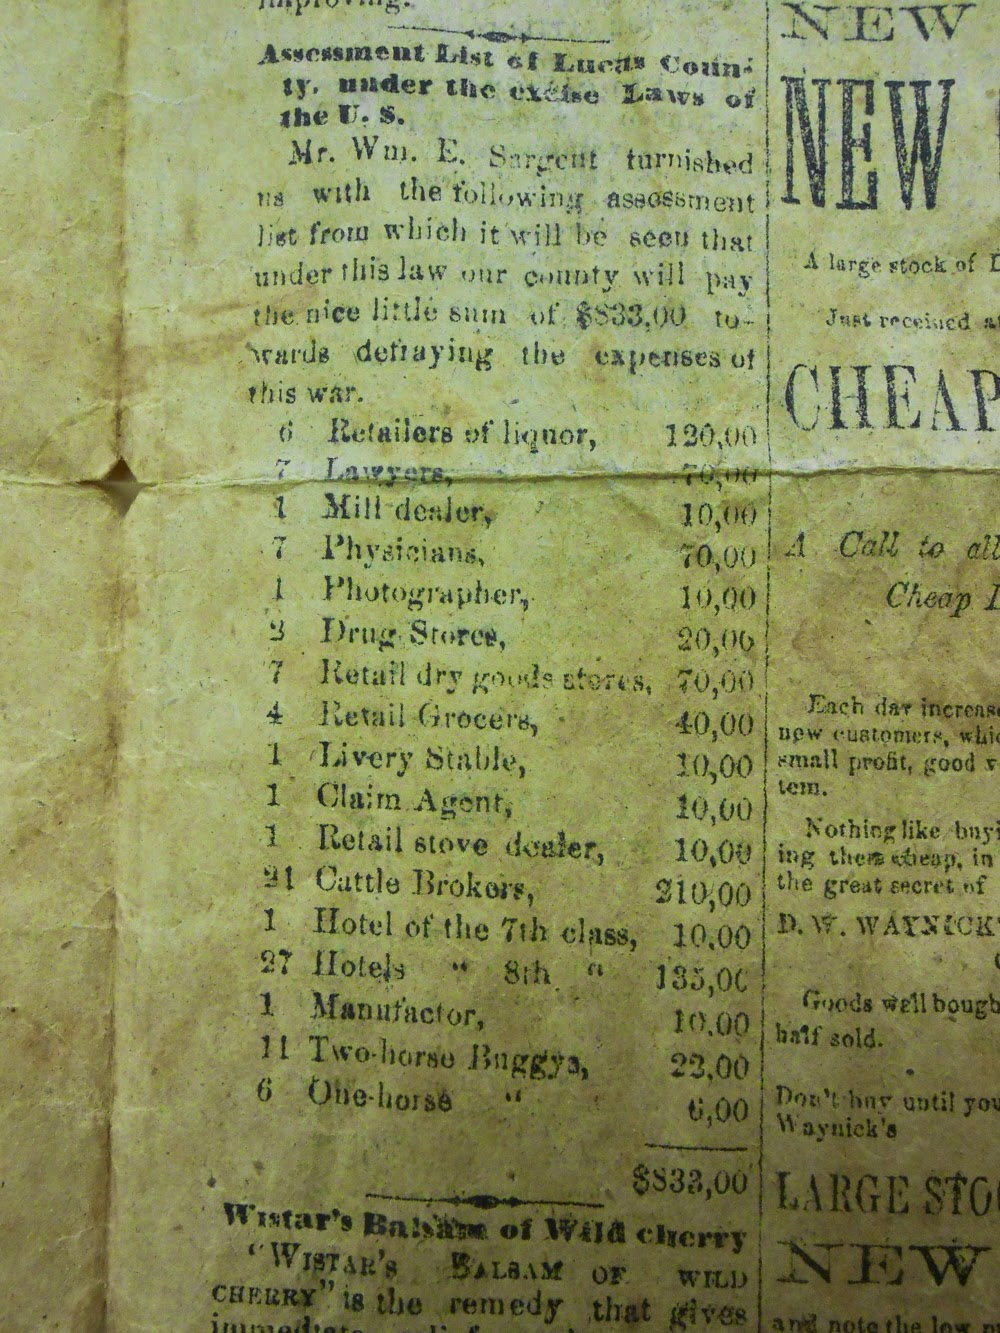 improving.
Assessment List of Lucas Coun-
ty, under the excise Laws of
the U. S.
Mr. Wm. E. Sargent furnished
us with the following assessment
list from which it will be seen that
under this law our county will pay
the nice little sum of $833,00 to-
wards defraying the expenses of
this war.
6 Retailers of liquor, 120,00
7 Lawyers, 70,00
1 Mill dealer, 10,00
7 Physicians, 70,00
1 Photographer, 10,00
2 Drug Stores, 20,00
7 Retail dry goods stores, 70,00
4 Retail Grocers, 40,00
1 Livery Stable, 10,00
1 Claim Agent, 10,00
1 Retail stove dealer, 10,00
21 Cattle Brokers, 210,00
1 Hotel of the 7th class, 10,00
27 Hotels “ 8th “ 135,00
1 Manufactor, 10,00
11 Two-horse Buggys, 22,00
6 One-horse “ 6,00
$833,00
Wistar's Balsam of Wild cherry
"WISTAR'S BALSAM OF WILD
CHERRY" is the remedy that gives
immediate
NEW
NEW
A large stock of D
Just received at
CHEAP
A Call to all
Cheap
Each day increase
new customers, whic
small profit, good v
tem.
Nothing like buyi
ing them cheap, in
the great secret of
D. W. WAYNICK'
Goods well bough
half sold.
Don't buy until you
Waynick's
LARGE STO
NEW
and note the low p